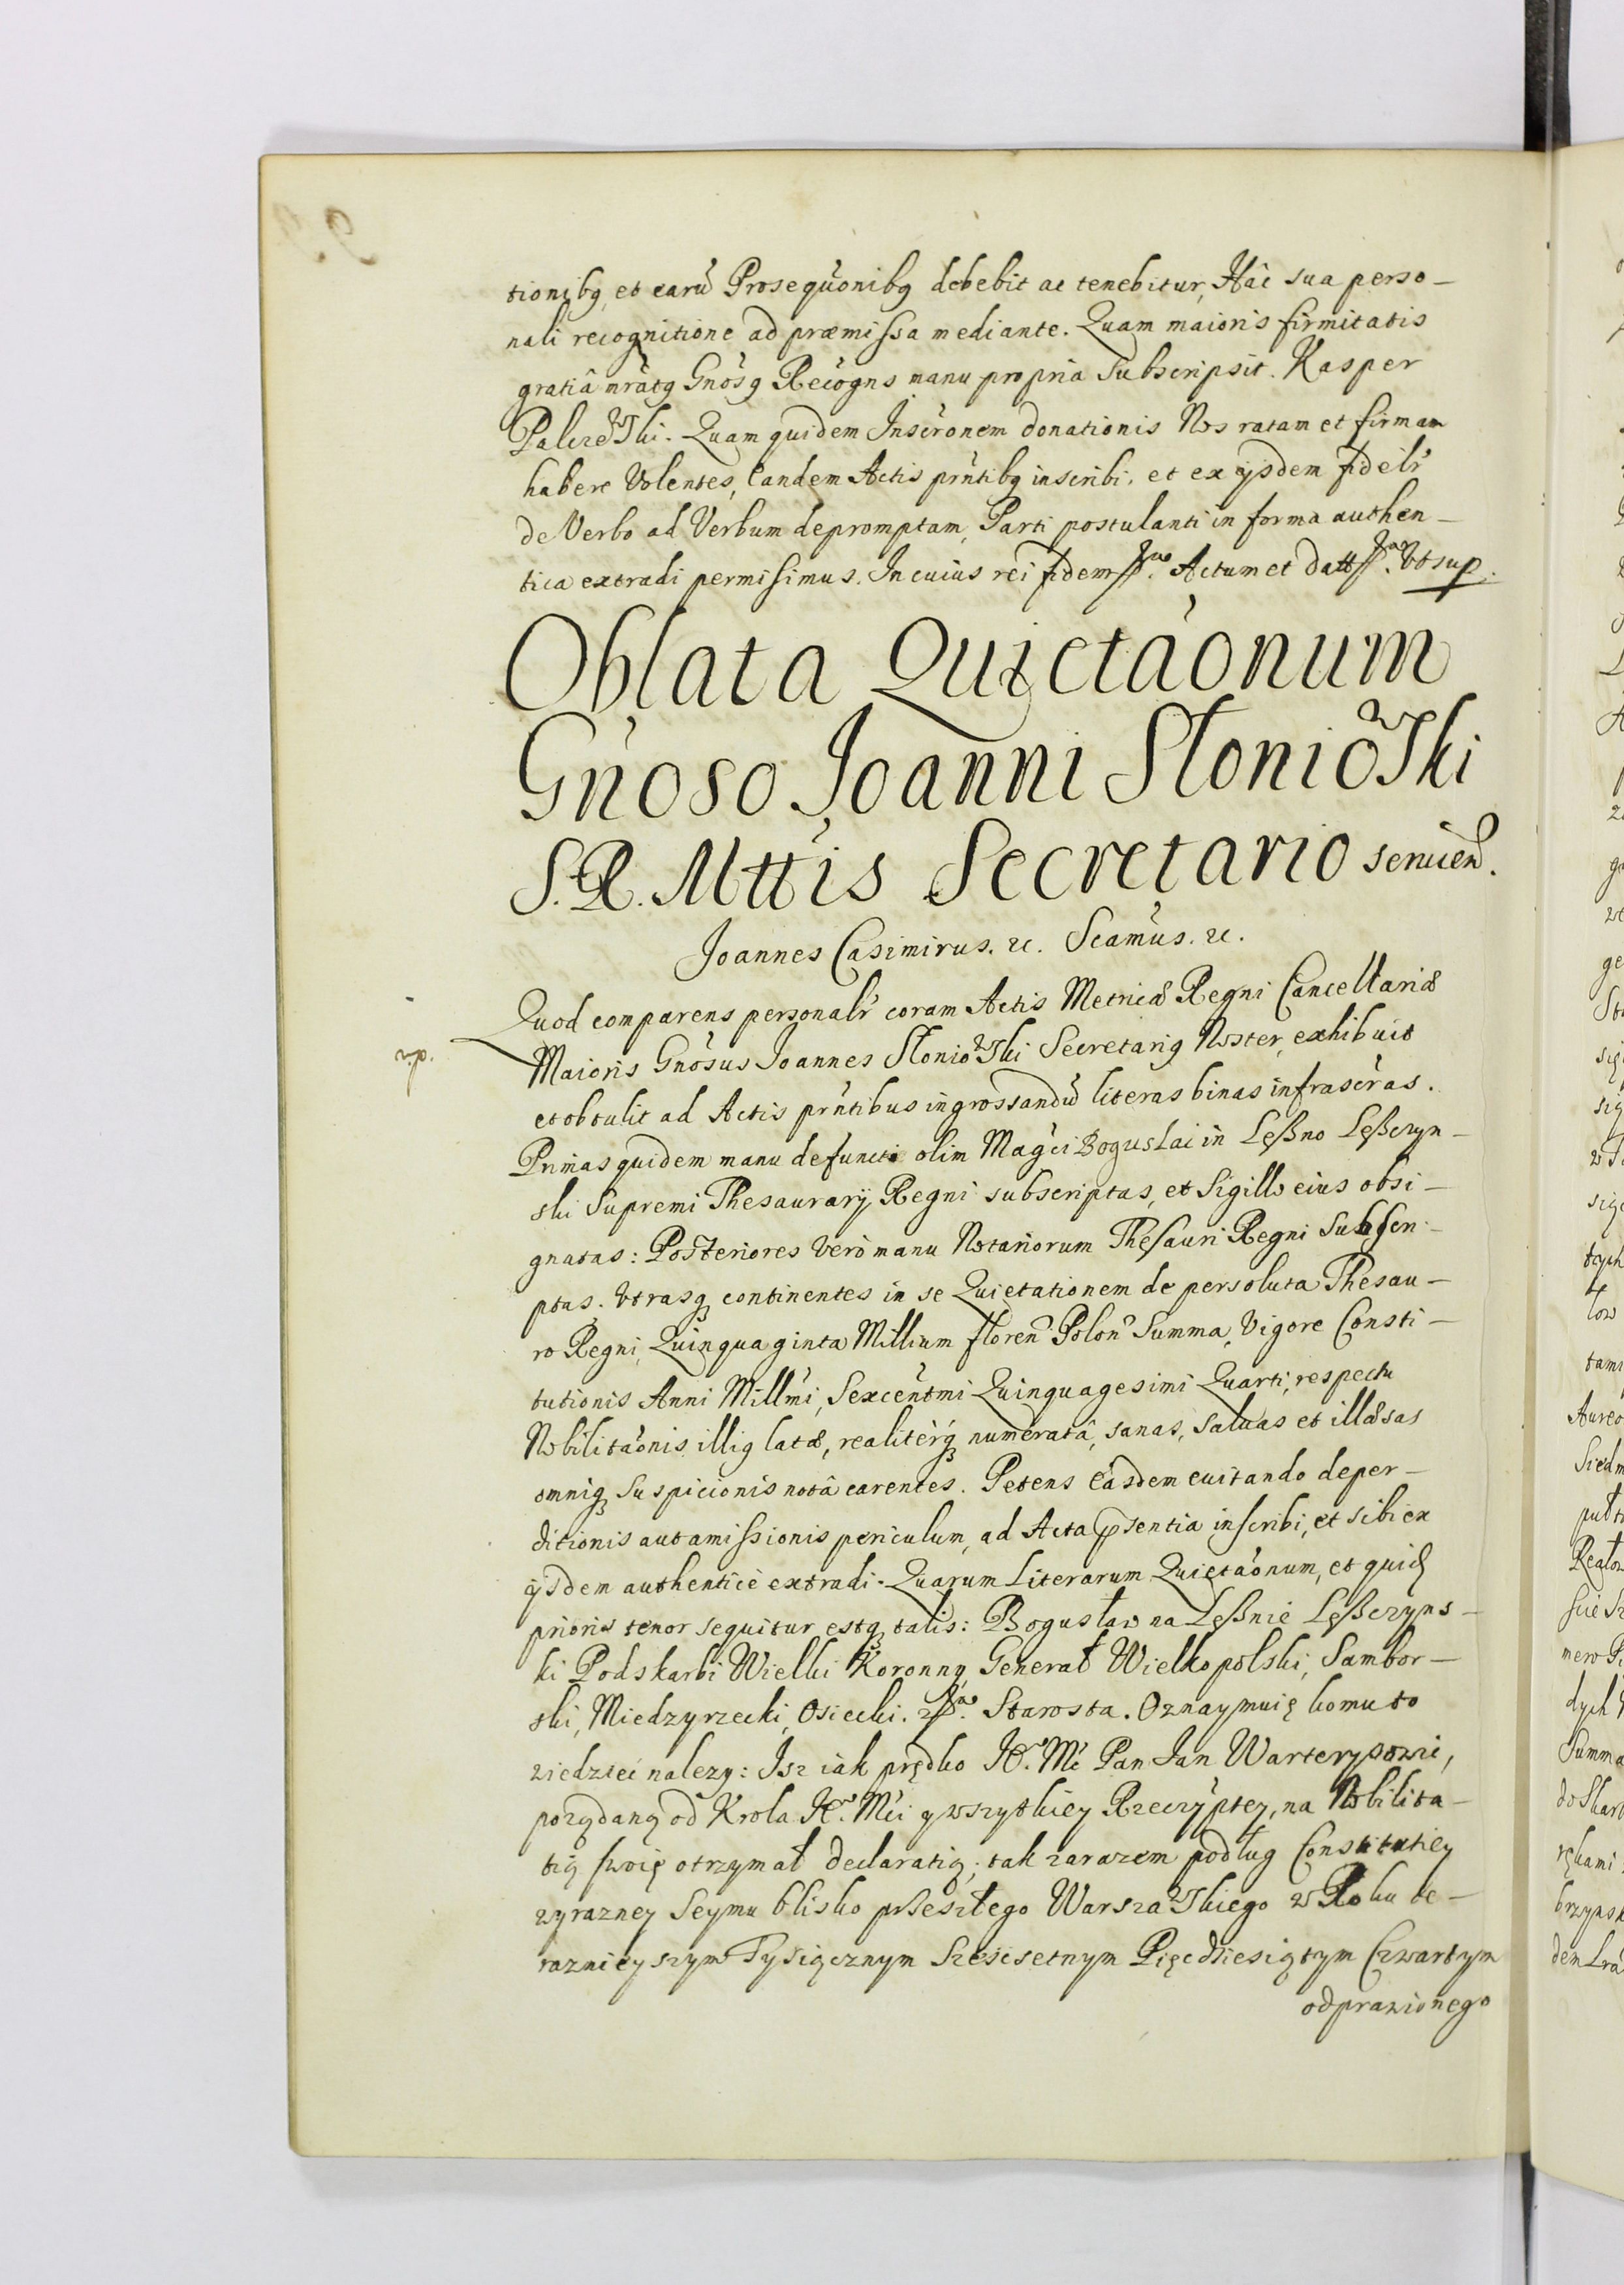 tionibq, et earu Prosequonibq debebit ac tenebitur, Hac sua perso-
nali recognitione ad præmissa mediante. Quam maioris firmitatis
gratiâ Gnosq Recogns manu propria Subscripsit. Kasper
Quam quidem Inscronem donationis Nos ratam et firmam
habere Volentes, Eandem Actis prntibq inscribi, et ex ijsdem fidelr
de Verbo ad Verbum depromptam, Parti postulanti in forma authen-
tica extradi permisimus. In cuius rei fidem Actum et datt Vt sup.
Oblata Quietaonum
Gnoso Joanni Słoniowski
S. R. Mttis Secretario seruien.
Joannes Casimirus. etc. Scamus. etc.
Quod comparens personalr coram Actis Metricæ Regni Cancellariæ
Maioris Gnosus Joannes Słoniowski Secretariq Noster, exhibuit
et obtulit ad Actis prntibus ingrossandu literas binas infrascras.
Primas quidem manu defuncti olim Magci Boguslai in Leßno Leßczyn-
ski Supremi Thesaurarij Regni subscriptas, et Sigillo eius obsi-
gnatas: Posteriores vero manu Notariorum Thesauri Regni Subscri-
ptas. Vtrasq continentes in se Quietationem de persoluta Thesau-
ro Regni, Quinquaginta Millium floren Polon Summa, Vigore Consti-
tutionis Anni Millmi, Sexcentmi Quinquagesimi Quarti, respectu
Nobilitaonis illiq latæ, realiterq numeratâ, sanas, saluas et illæsas
omniq Suspicionis notâ carentes. Petens Easdem euitando deper-
ditionis aut amissionis periculum, ad Acta psentia inscribi, et sibi ex
ijsdem authentice extradi. Quarum Literarum Quietaonum, et quid
prioris tenor sequitur estq talis: Bogusław na Leßnie Leßczyns-
ki Podskarbi Wielki Koronny, Generał Wielkopolski, Sambor-
ski, Miedzyrzecki, Osiecki. Starosta. Oznaymuię komu to
wiedziec nalezy: Isz iak prędko Jᵒ. Mc Pan Jan Warterysowic,
poządaną od Krola Jᵒ. Mci y wszytkiey Rzeczyptey, na Nobilita-
tią swoię otrzymał declaratią; tak zarazem podług Constitutiey
wyrazney Seymu blisko przeszłego Warszawskiego w Roku te-
raznieyszym Tysiącznym Szescsetnym Pięcdziesiątym Czwartym
odprawionego